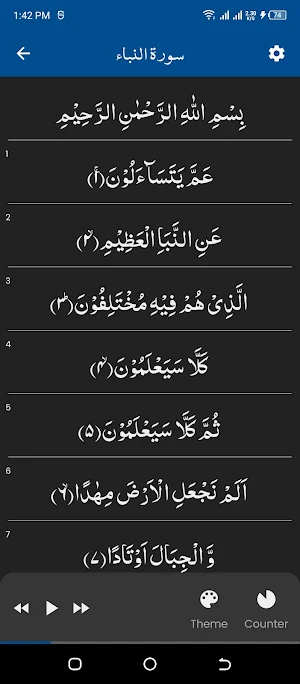 1:42 PM 2.30 K/s 74
سورة النباء
بِسْمِ اللّٰهِ الرَّحْمٰنِ الرَّحِيْمِ
1
عَمَّ يَتَسَآءَلُوْنَ﴿۱﴾
2
عَنِ النَّبَاِ الْعَظِيْمِ﴿۲﴾
3
الَّذِىْ هُمْ فِيْهِ مُخْتَلِفُوْنَ﴿۳﴾
4
كَلَّا سَيَعْلَمُوْنَ﴿۴﴾
5
ثُمَّ كَلَّا سَيَعْلَمُوْنَ﴿۵﴾
6
اَلَمْ نَجْعَلِ الْاَرْضَ مِهٰدًا﴿۶﴾
7
وَّ الْجِبَالَ اَوْتَادًا﴿۷﴾
Theme Counter